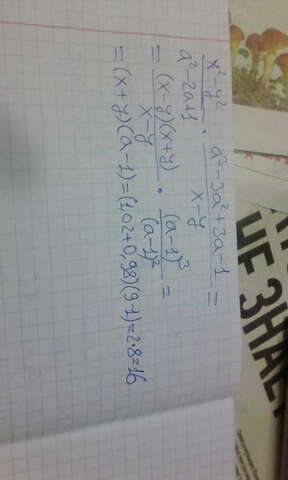 x²-y²/a²-2a+1 · a³-3a²+3a-1/x-y =
= (x-y)(x+y)/x-y · (a-1)³/(a-1)² =
= (x+y)(a-1)=(1,02+0,98)(9-1)=2·8=16
ЗНАЕ